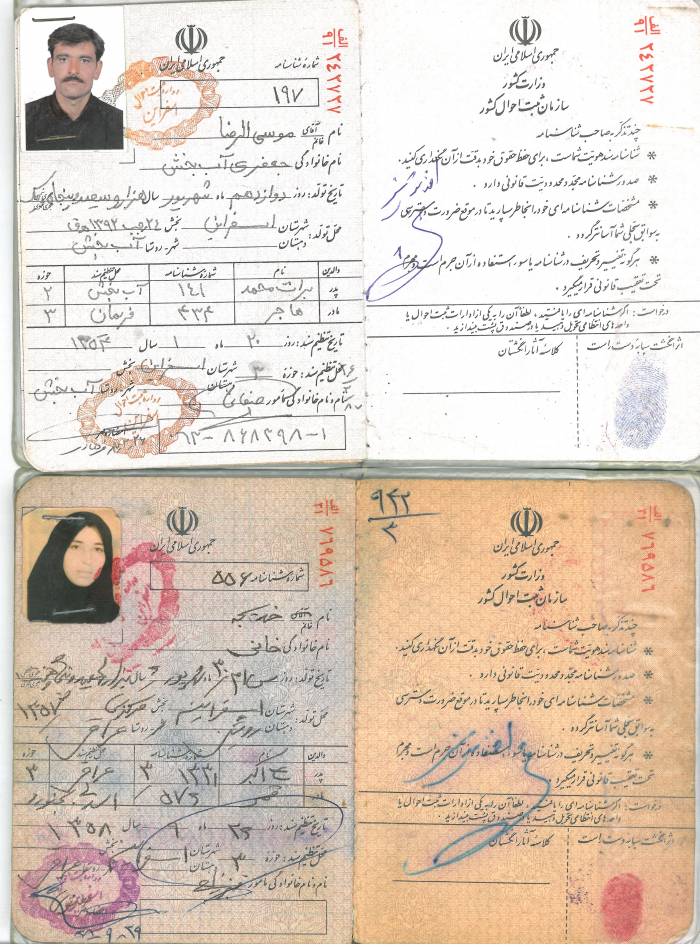 جمهوری اسلامی ایران
شماره شناسنامه
۱۹۷
الف
۹۱
۲۴۲۷۲۷
نام آقای خانم موسی الرضا
نام خانوادگی جعفری آب بخش
تاریخ تولد: روز دوازدهم ماه شهریور سال هزار و سیصد و پنجاه
محل تولد: شهرستان اسفراین بخش
دهستان شهر - روستا آب بخش
والدین نام شماره شناسنامه محل تنظیم سند حوزه
پدر برات محمد ۱۴۱ آب بخش ۲
مادر هاجر ۴۳۴ فریمان ۳
تاریخ تنظیم سند: روز ۲۰ ماه ۱ سال ۱۳۵۴
محل تنظیم سند: حوزه ۳ شهرستان اسفراین بخش
دهستان شهر - روستا آب بخش
نام و نام خانوادگی مأمور
جمهوری اسلامی ایران
وزارت کشور
سازمان ثبت احوال کشور
الف
۹۱
۲۴۲۷۲۷
چند تذکر به صاحب شناسنامه
* شناسنامه سند هویت شماست، برای حفظ حقوق خود به دقت از آن نگهداری کنید.
* صدور شناسنامه مجدد محدودیت قانونی دارد.
* مشخصات شناسنامه ای خود را بخاطر بسپارید تا در موقع ضرورت دسترسی
به سوابق سجلی شما آسانتر گردد.
* هرگونه تغییر و تحریف در شناسنامه یا سوء استفاده از آن جرم است و مجرم
تحت تعقیب قانونی قرار میگیرد.
درخواست: اگر شناسنامه ای را یافتید، لطفاً آن را به یکی از ادارات ثبت احوال یا
واحدهای انتظامی تحویل دهید یا در صندوق پست بیندازید.
اثر انگشت سبابه دست راست
کلاسه آثار انگشتان
جمهوری اسلامی ایران
شماره شناسنامه ۵۵۶
الف
۳۱
۷۶۹۵۸۶
نام آقای خانم خدیجه
نام خانوادگی خانی
تاریخ تولد: روز ماه شهریور
محل تولد: شهرستان اسفراین بخش مرکزی
دهستان روئین شهر - روستا
والدین نام شماره شناسنامه محل تنظیم سند حوزه
پدر ۱۳۳۱ ۳
مادر ۵۷۵
تاریخ تنظیم سند: روز ۲۵ ماه ۹ سال ۱۳۵۸
محل تنظیم سند: حوزه ۳ شهرستان
نام و نام خانوادگی مأمور
۹۴۲
۳
جمهوری اسلامی ایران
وزارت کشور
سازمان ثبت احوال کشور
الف
۳۱
۷۶۹۵۸۶
چند تذکر به صاحب شناسنامه
* شناسنامه سند هویت شماست، برای حفظ حقوق خود به دقت از آن نگهداری کنید.
* صدور شناسنامه مجدد محدودیت قانونی دارد.
* مشخصات شناسنامه ای خود را بخاطر بسپارید تا در موقع ضرورت دسترسی
به سوابق سجلی شما آسانتر گردد.
* هرگونه تغییر و تحریف در شناسنامه یا سوء استفاده از آن جرم است و مجرم
تحت تعقیب قانونی قرار میگیرد.
درخواست: اگر شناسنامه ای را یافتید، لطفاً آن را به یکی از ادارات ثبت احوال یا
واحدهای انتظامی تحویل دهید یا در صندوق پست بیندازید.
اثر انگشت سبابه دست راست
کلاسه آثار انگشتان